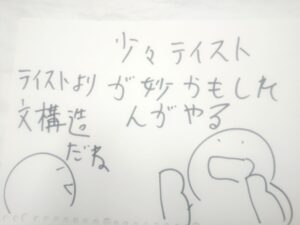 少々テイスト
が妙かもしれ
んがやる
テイストより
文構造
だね